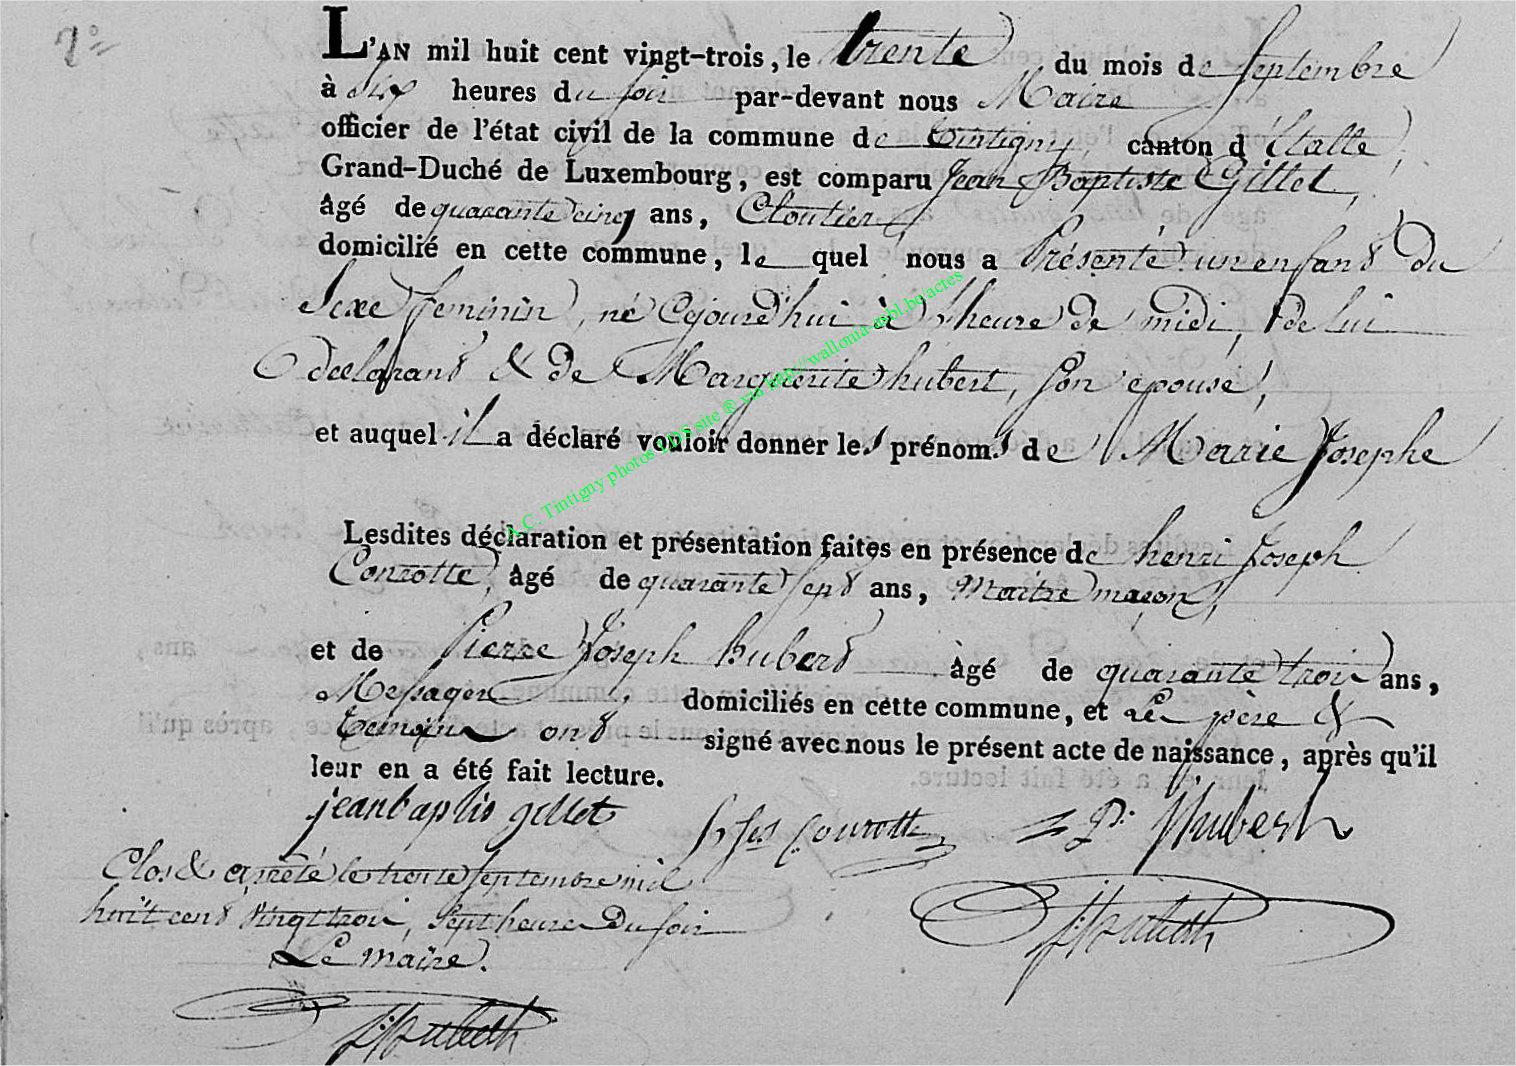 7°
L'AN mil huit cent vingt-trois, le trente du mois de septembre
à six heures du soir par-devant nous Maire
officier de l'état civil de la commune de tintigny, canton d'Etalle,
Grand-Duché de Luxembourg, est comparu Jean Baptiste Gillet,
âgé de quarante cinq ans, Cloutier,
domicilié en cette commune, le quel nous a Présenté un enfant Du
Sexe feminin, né Cejourd'hui à heure de midi, de lui
declarant & de Marguerite hubert, son epouse,
et auquel il a déclaré vouloir donner les prénoms de Marie Josephe
A.C. Tintigny photos LDS site ® via http://wallonia-asbl.be/actes
Lesdites déclaration et présentation faites en présence de henri Joseph
Conrotte, âgé de quarante sept ans, Maitre maçon,
et de Pierre Joseph hubert âgé de quarante trois ans,
Messager, domiciliés en cette commune, et Le père &
temoins ont signé avec nous le présent acte de naissance, après qu'il
leur en a été fait lecture.
jean baptis gillet
conrotte
P. J hubert
Clos & arrêté le trente septembre mil
huit cent vingt trois, sept heures Du soir
Le maire.